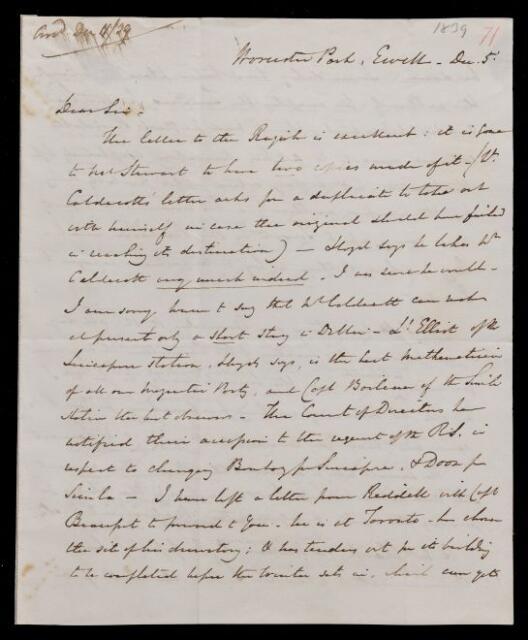 Ansd Dec 11/39
1839
71
Worcester Park, Ewell - Dec. 5
Dear Sir -
The letter to the Rajah is excellent: it is gone
to Mr Stewart to have two copies made of it - (Mr
Caldecott's letter asks for a duplicate to take out
with himself in case the original should have failed
in reaching its destination) - Lloyd says he likes Mr
Caldecott very much indeed. I was sure he would -
I am sorry however to say that Mr Caldecott can make
at present only a short stay in Dublin - Lt Elliot of the
Singapore station, Lloyd says, is the best Mathematician
of all our Magnetic Party, and Capt Boileau of the Simla
Station the best observer - The Court of Directors have
notified their accession to the request of the R.S. in
respect to changing Bombay for Sincapore, &
for
Simla - I have left a letter from Riddell with Capt
Beaufort to forward to you - he is at Toronto - has chosen
the site of his observatory; & has tenders out for its building
to be completed before the winter sets in, which